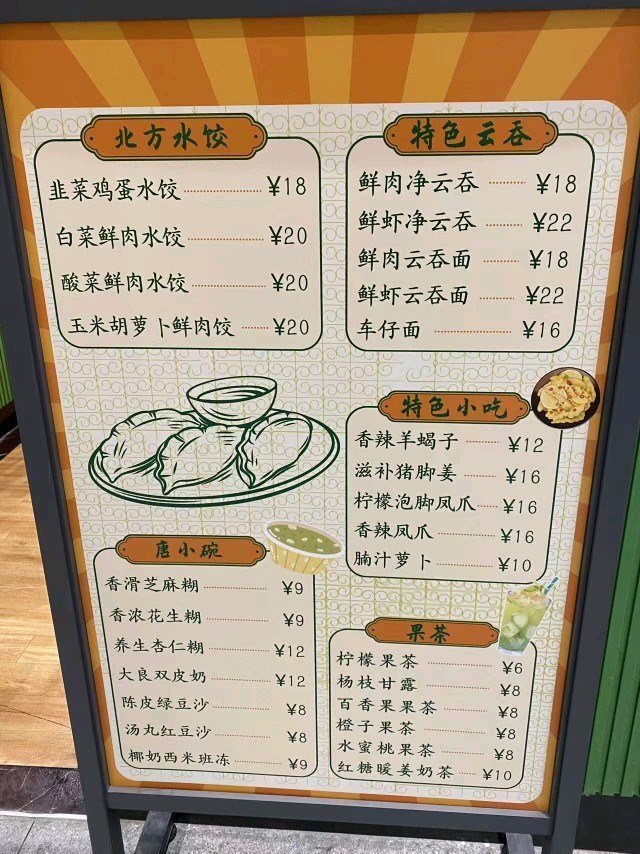 北方水饺
韭菜鸡蛋水饺 ¥18
白菜鲜肉水饺 ¥20
酸菜鲜肉水饺 ¥20
玉米胡萝卜鲜肉饺 ¥20
特色云吞
鲜肉净云吞 ¥18
鲜虾净云吞 ¥22
鲜肉云吞面 ¥18
鲜虾云吞面 ¥22
车仔面 ¥16
特色小吃
香辣羊蝎子 ¥12
滋补猪脚姜 ¥16
柠檬泡脚凤爪 ¥16
香辣凤爪 ¥16
腩汁萝卜 ¥10
唐小碗
香滑芝麻糊 ¥9
香浓花生糊 ¥9
养生杏仁糊 ¥12
大良双皮奶 ¥12
陈皮绿豆沙 ¥8
汤丸红豆沙 ¥8
椰奶西米班冻 ¥9
果茶
柠檬果茶 ¥6
杨枝甘露 ¥8
百香果果茶 ¥8
橙子果茶 ¥8
水蜜桃果茶 ¥8
红糖暖姜奶茶 ¥10